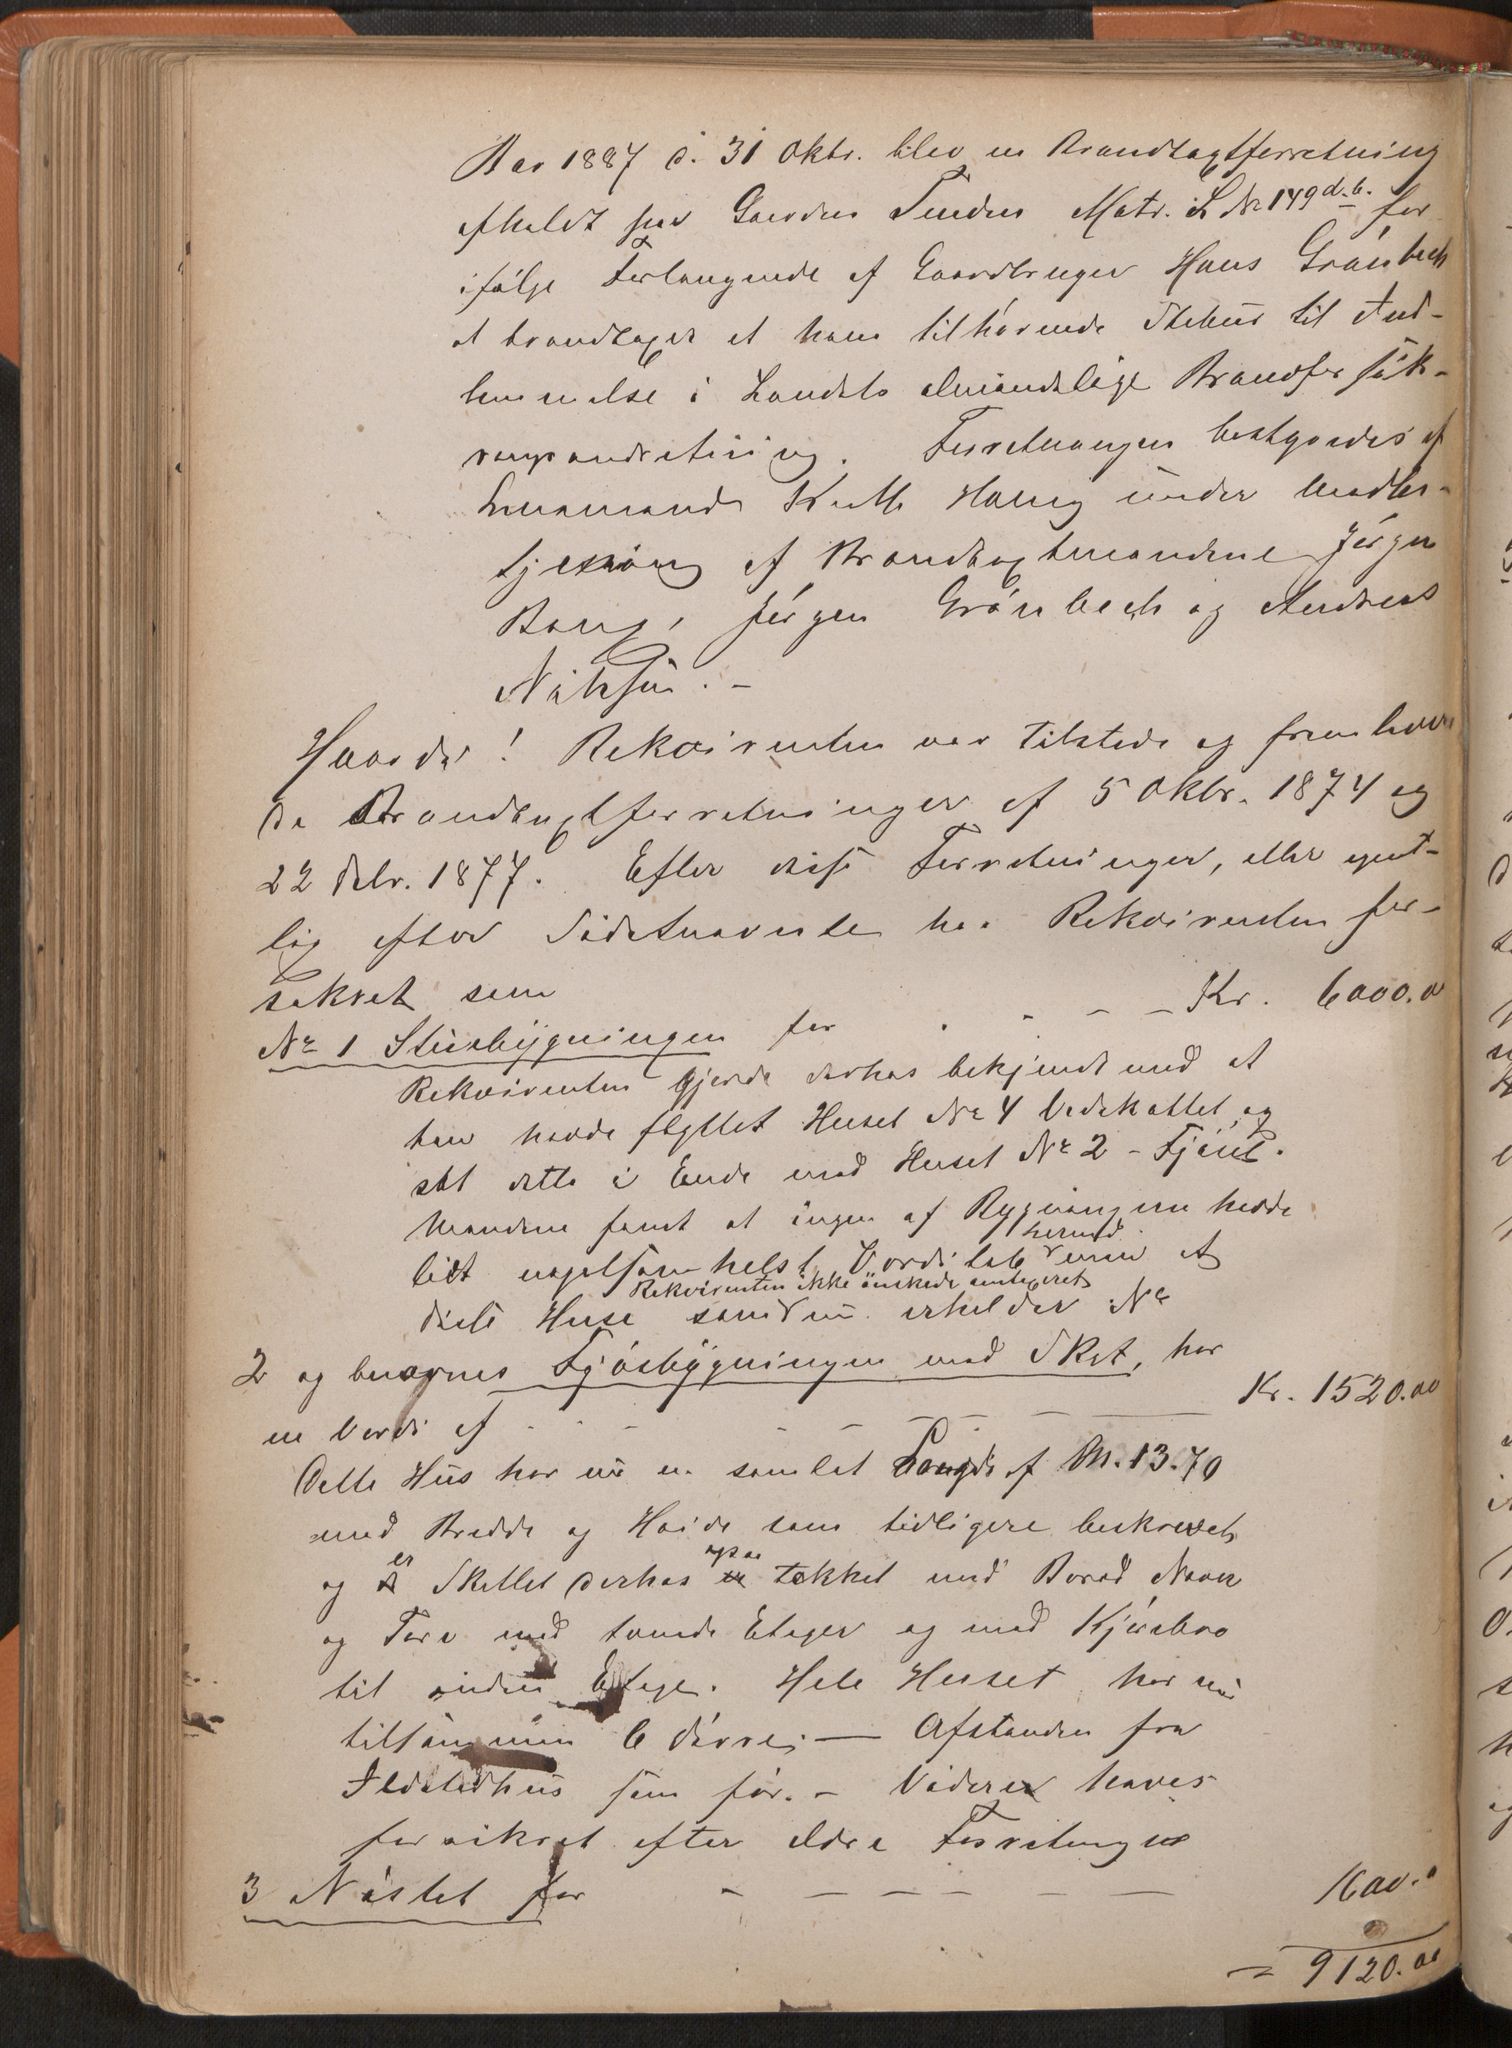 Aar 1887 d. 31 Oktr. blev en Brandtaxtforretning
afholdt paa Gaarden Tinden Matr. L Nr 149 d. b. for
ifølge Forlangende af Gaardbruger Hans Grønbech
at brandtaxere et ham tilhørende Stebur til Ind-
lemmelse i Landets almindelige Brandforsik-
ringsindretning. Forretningen bestyredes af
Lensmand Haug under Medbe-
tjening af Brandtaxtmændene Jørgen
Bang, Jørgen Grønbech og Andreas
Nilssen. -
Hvorda! Rekvirenten var tilstede og fremlagde
de Brandtaxtforretninger af 5 Oktbr. 1874 og
22 1877. Efter disse Forretninger, eller egent-
lig efter Sidstnævnte har Rekvirenten for-
sikret som
Nr 1 Stuebygningen for - - - - Kr. 6000.00
Rekvirenten gjorde derhos bekjendt med at
han havde flyttet Huset Nr 4 Vedskottet, og
sat dette i Ende med Huset Nr 2 - Fjøset.
Mændene fandt at ingen af Bygningerne havde
lidt nogetsomhelst Værditab hermed men at
disse Huse som Rekvirenten ikke ønskede omtaxeret nu erholder Nr
2 og benævnes Fjøsbygningen med Skot, har
en Værdi af - - - - - - Kr. 1520.00
Dette Hus har nu en samlet Længde af M. 13.70
med Bredde og Høide som tidligere beskrevet
og er Skottet derhos ogsaa tækket med Bord Næver
og Torv med tvende Etager og med Kjørebro
til anden Etage. Hele Huset har nu
tilsammen 6 Dørre; — Afstanden fra
Ildstedhus som før. - Videre haves
forsikret efter ældre Forretninger
3 Nøstet for - - - - - - 1600.0
= 9120.00